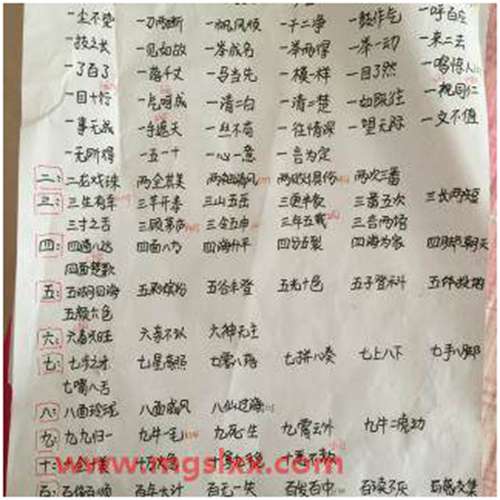 一尘不染 一刀两断 一帆风顺 一干二净 一鼓作气 一呼百应
一技之长 一见如故 一举成名 一举两得 一举一动 一来二去
一了百了 一落千丈 一马当先 一模一样 一目了然 一鸣惊人
一目十行 一气呵成 一清二白 一清二楚 一如既往 一视同仁
一事无成 一手遮天 一丝不苟 一往情深 一望无际 一文不值
一无所得 一五一十 一心一意 一言为定
二: 二龙戏珠 两全其美 两袖清风 两败俱伤 两次三番
三: 三生有幸 三羊开泰 三山五岳 三更半夜 三番五次 三长两短
三寸之舌 三顾茅庐 三令五申 三年五载 三言两语
四: 四通八达 四面八方 四海升平 四分五裂 四海为家 四脚朝天
四面楚歌
五: 五湖四海 五彩缤纷 五谷丰登 五光十色 五子登科 五体投地
五颜六色
六: 六畜兴旺 六亲不认 六神无主
七: 七步之才 七星高照 七零八落 七拼八凑 七上八下 七手八脚
七嘴八舌
八: 八面玲珑 八面威风 八仙过海
九: 九九归一 九牛一毛 九死一生 九霄云外 九牛二虎功
十:
www.mgslxx.com
百: 百依百顺 百年大计 百无一失 百发百中 百读不厌 百感交集